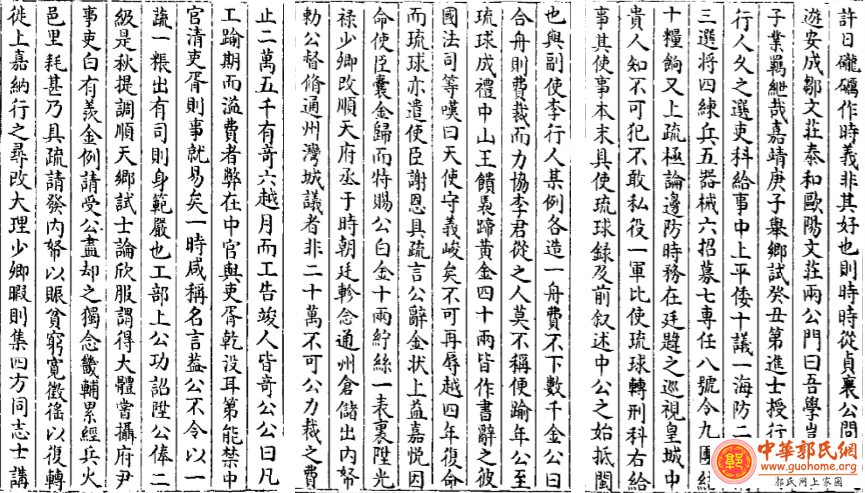 許曰礲礪作時義非其好也則時時從貞襄公問
遊安成鄒文莊泰和歐陽文莊兩公門曰吾學豈
子業羈紲哉嘉靖庚子舉鄉試癸丑第進士授行
行人久之選吏科給事中上平倭十議一海防二
三選將四練兵五器械六招募七專任八號令九團結
十糧餉又上疏極論邊防時務在廷韙之巡視皇城中
貴人知不可犯不敢私役一軍比使琉球轉刑科右給
事其使事本末具使琉球錄及前叙述中公之始抵閩
也與副使李行人某例各造一舟費不下數千金公曰
合舟則費裁而力協李君從之人莫不稱便踰年公至
琉球成禮中山王饋裹蹄黃金四十兩皆作書辭之彼
國法司等嘆曰天使守義峻矣不可再辱越四年復命
而琉球亦遣使臣謝恩具疏言公辭金狀上益嘉悅因
命使臣囊金歸而特賜公白金十兩紵絲一表裏陞光
祿少卿改順天府丞于時朝廷軫念通州倉儲出內帑
勑公督脩通州灣城議者非二十萬不可公力裁之費
止二萬五千有奇六越月而工告竣人皆奇公公曰凡
工踰期而溢費者弊在中官與吏胥乾沒耳第能禁中
官清吏胥則事就易矣一時咸稱名言益公不令以一
蔬一粻出有司則身範嚴也工部上公功詔陞公俸二
級是秋提調順天鄉試士論欣服謂得大體嘗攝府尹
事吏白有羨金例請受公盡却之獨念畿輔累經兵火
邑里耗甚乃具疏請發內帑以賑貧窮寬徵徭以復轉
徙上嘉納行之尋改大理少卿暇則集四方同志士講
中華郭氏網
www.guohome.org
郭氏网上家園